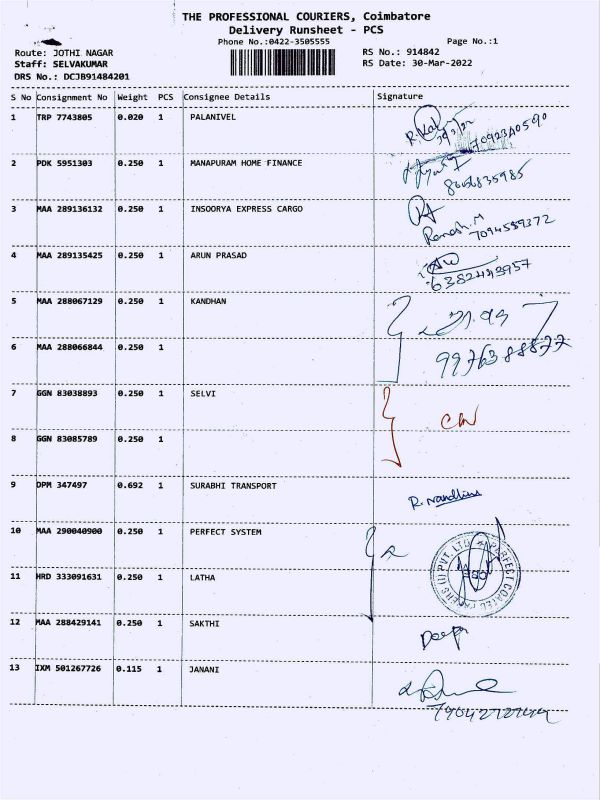 THE PROFESSIONAL COURIERS, Coimbatore
Delivery Runsheet - PCS
Phone No.:0422-3505555
Page No.:1
Route: JOTHI NAGAR
RS No.: 914842
Staff: SELVAKUMAR
RS Date: 30-Mar-2022
DRS No.: DCJB91484201
S No Consignment No Weight PCS Consignee Details Signature
1 TRP 7743805 0.020 1 PALANIVEL
2 PDK 5951303 0.250 1 MANAPURAM HOME FINANCE
3 MAA 289136132 0.250 1 INSOORYA EXPRESS CARGO
Ramesh.M
7094589372
4 MAA 289135425 0.250 1 ARUN PRASAD
6382443957
5 MAA 288067129 0.250 1 KANDHAN
6 MAA 288066844 0.250 1
7 GGN 83038893 0.250 1 SELVI
8 GGN 83085789 0.250 1
9 DPM 347497 0.692 1 SURABHI TRANSPORT
R. Nandhini
10 MAA 290040900 0.250 1 PERFECT SYSTEM
PERFECT COATED PAPERS (I) PVT. LTD.
11 HRD 333091631 0.250 1 LATHA
12 MAA 288429141 0.250 1 SAKTHI
Deepa
13 IXM 501267726 0.115 1 JANANI